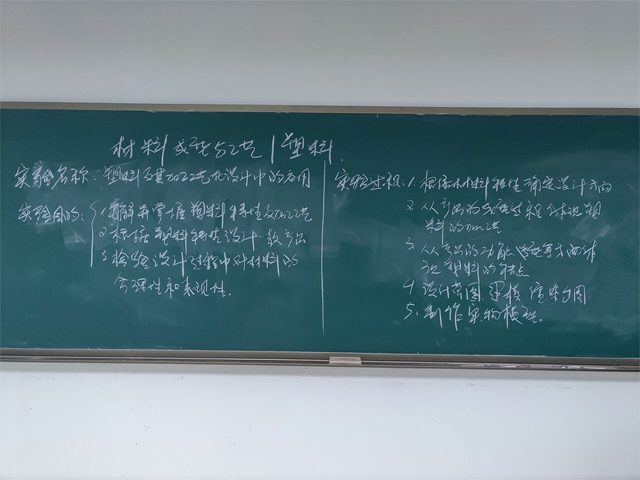 材料成型与工艺 | 塑料
实验名称: 塑料及其加工工艺在设计中的应用
实验目的: 1 了解并掌握塑料特性及加工工艺
2 根据塑料特性设计一款产品
3 检验设计过程中对材料的
合理性和表现性.
实验过程: 1 根据材料特性确定设计方向
2. 从产品的造型与 体现塑
料的加工工艺
3 从产品的功能 等方面体
现塑料的特点
4 设计草图 建模 渲染 图
5. 制作实物模型.